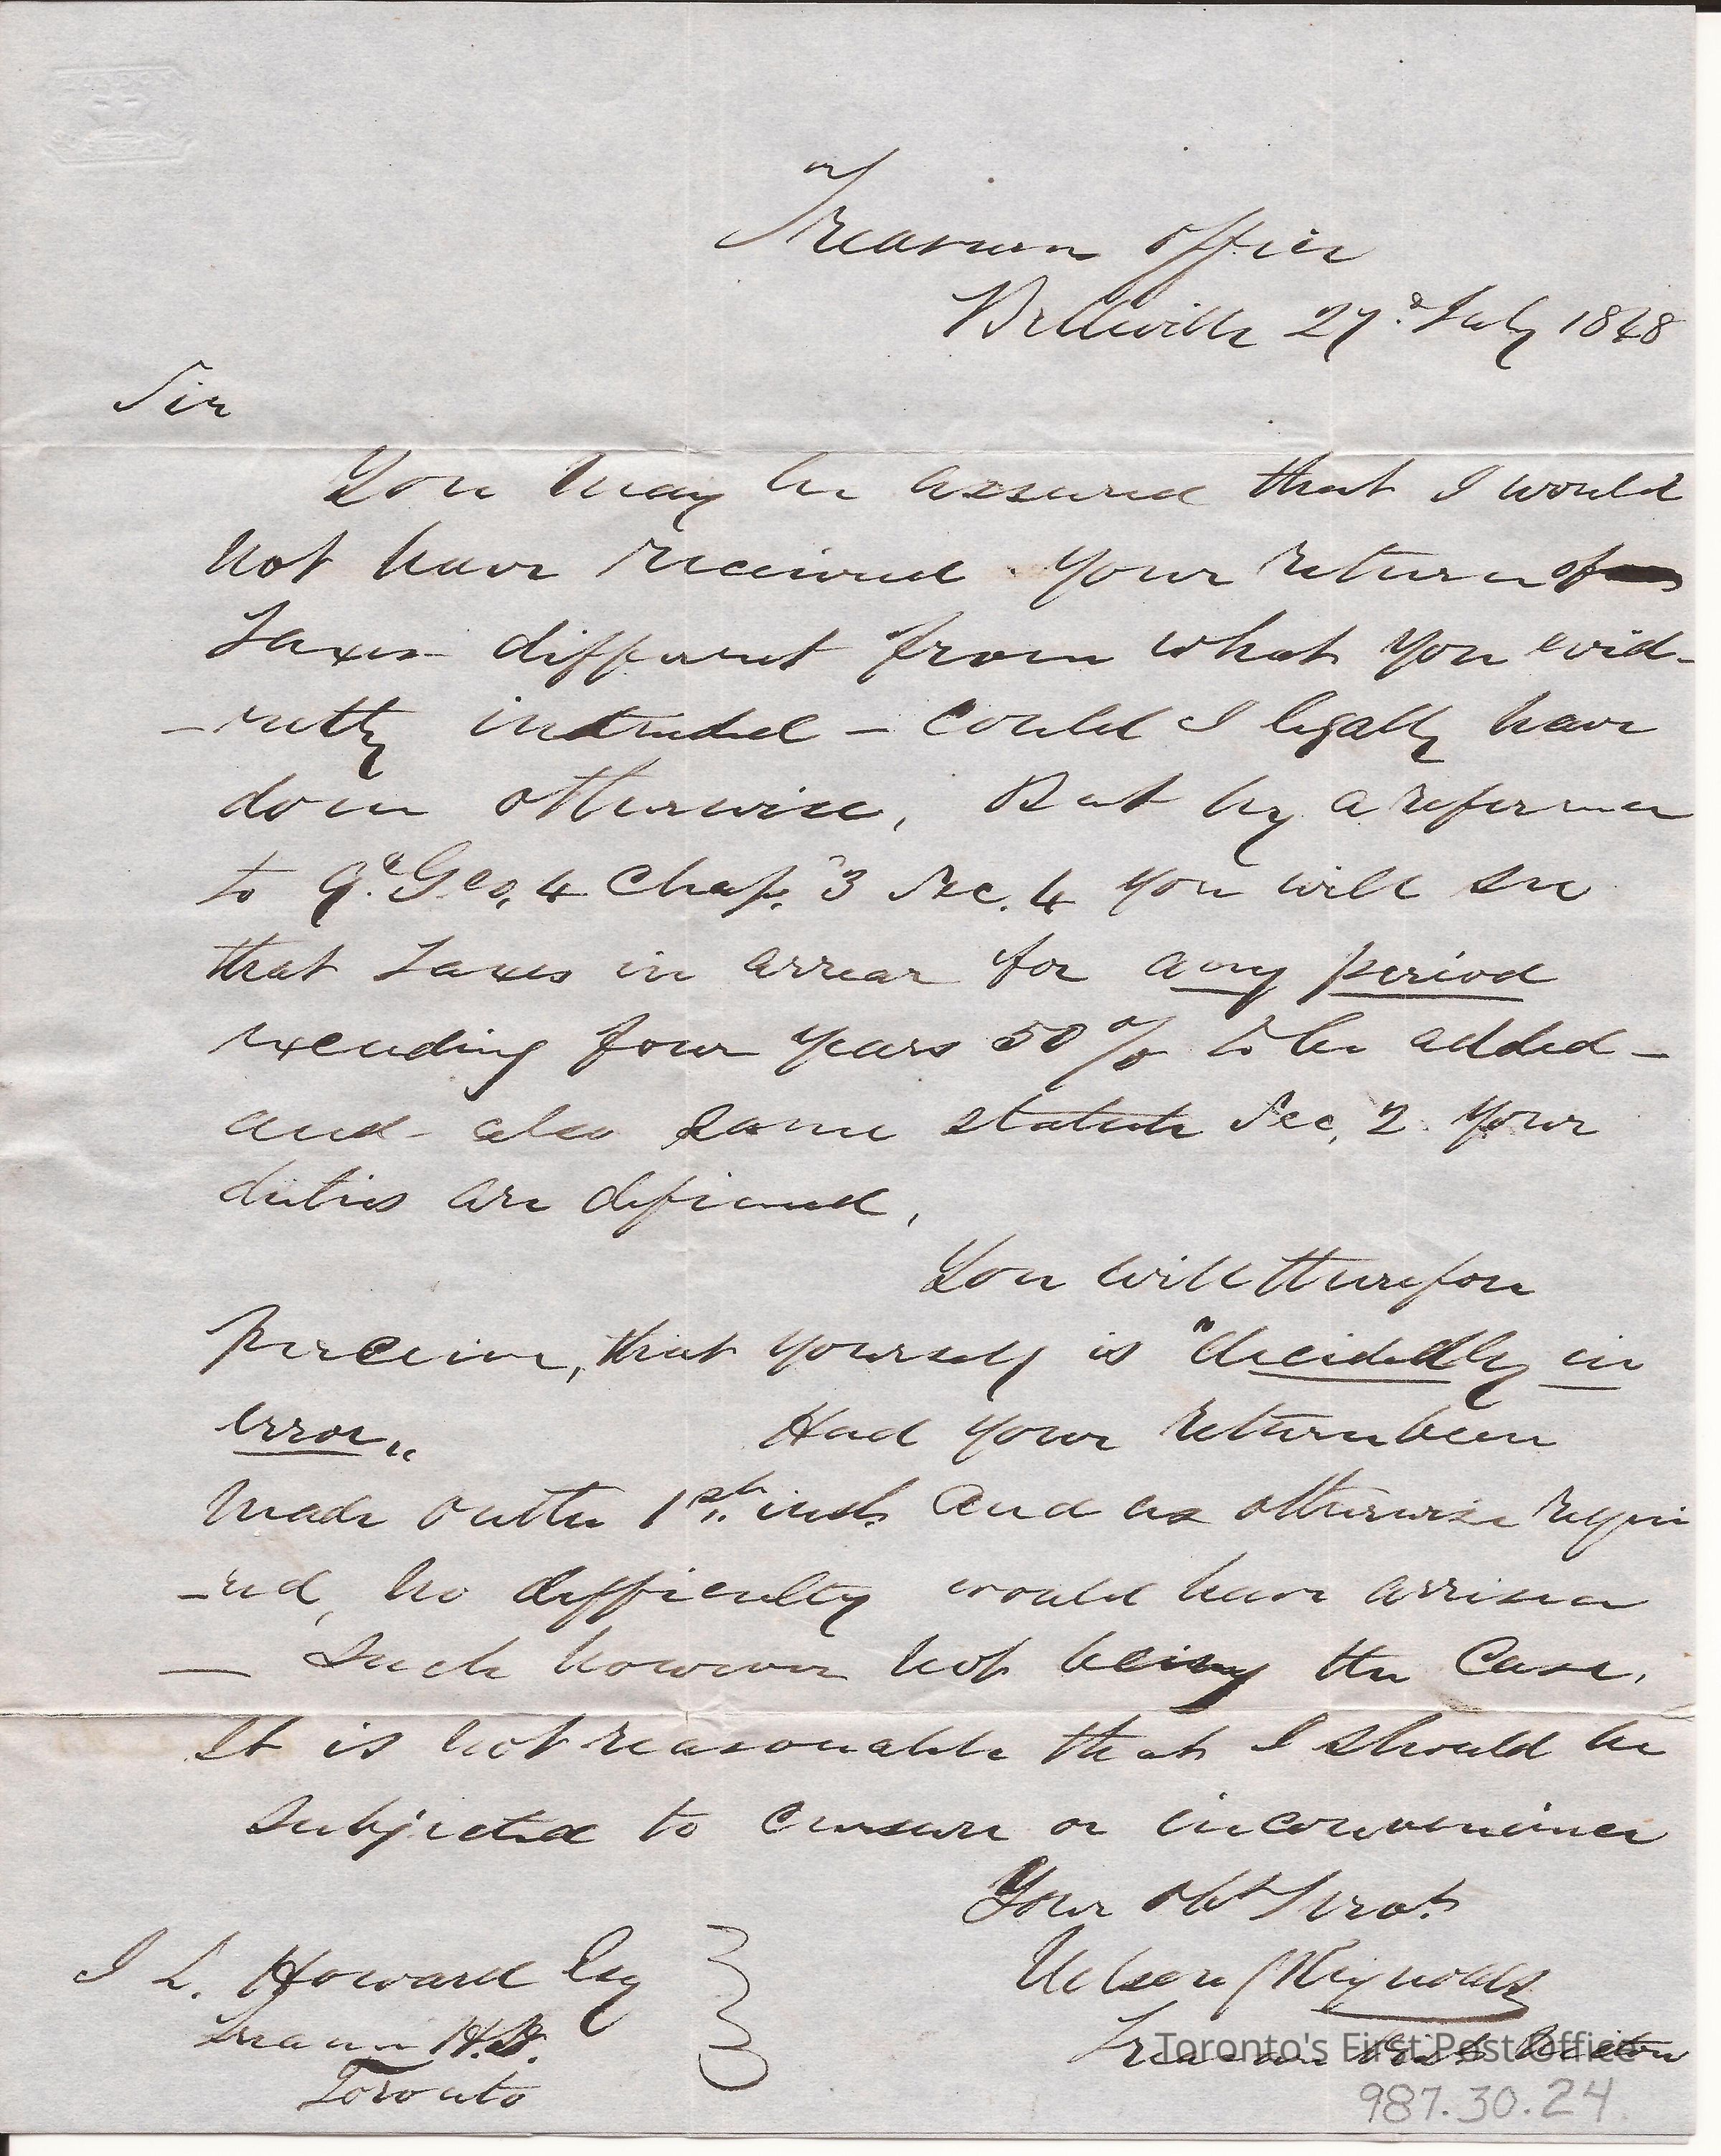 Treasurers Office
Belleville 27th July 1848
Sir
You may be assured that I would
not have received your return of
Taxes different from what you evid-
-ently intended - could I legally have
done otherwise, But by a reference
to 9th Geo, 4 Chap. 3 Sec. 4 you will see
that Taxes in arrear for any period
exceeding four years 50 % to be added -
and also same statute Sec, 2 your
duties are defined,
You will therefore
perceive, that yourself is "decidedly in
error"
Had your return been
made on the 1st inst. and as otherwise requir
-ed, no difficulty would have arrisen
- Such however not being the Case,
It is not reasonable that I should be
subjected to censure or inconvenience
Your obt Servt.
Nelson G Reynolds
Treasurer Dist. Victoria
J L. Howard Esq
Treasurer H.D.
Toronto
Toronto's First Post Office
987.30.24